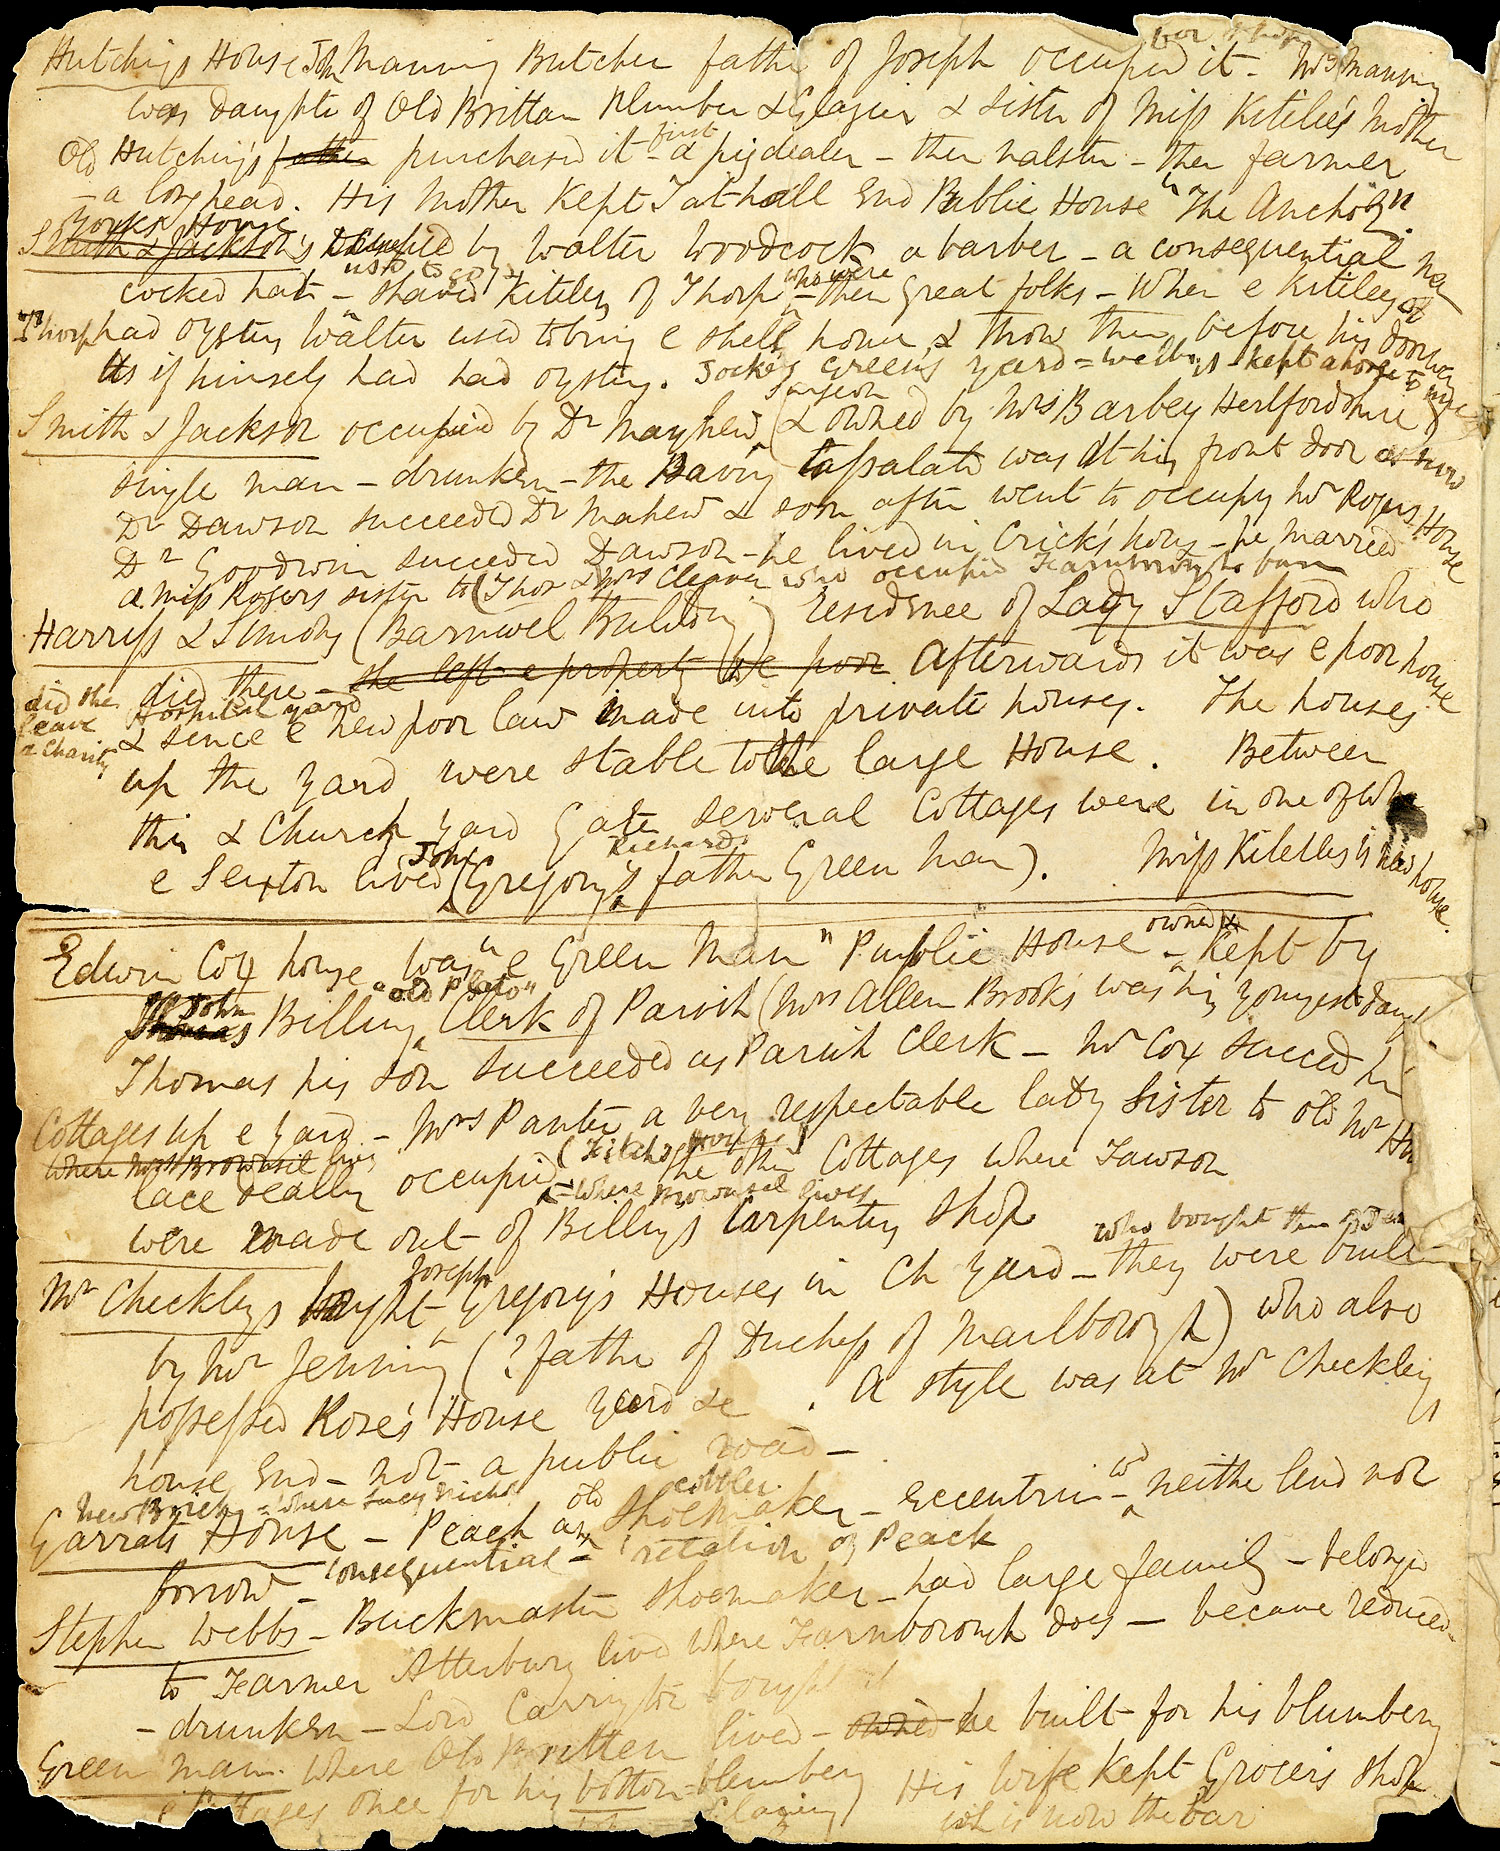 Hutchings House John Manning Butcher father of Joseph occupied it - Mrs Manning
was Daughter of Old Brittan Plumber & Glazier & sister of Miss Kitilee's Mother
Old Hutchings father purchased it - first a pigdealer - then malster - then farmer
- a long head. His Mother kept Tathall End Public House "The Anchor"
Yorks House
Smith & Jackson's occupied by Walter Woodcock a barber - a consequential man
cocked hat - used to go & shaved Kitiley of Thorp - who were then great folks - When e Kitileys of
Thorp had oysters Walter used to bring e shells home & throw them before his door
As if himself had had oysters. Jockey Greens yard = kept a horse to
Smith & Jackson occupied by Dr Mayhew Surgeon (& owned by Mrs Barbey Hertfordshire)
single man - drunken - the was At his front door
Dr Dawson succeeded Dr Mahew & soon after went to occupy Mr Rogers House
Dr Goodwin succeeded Dawson - he lived in Crick's house - he married
a Miss Rogers sister to (Thos & Mrs Cleaver who occupied farm
Harriss & Simons (Barnwel Building) residence of Lady Stafford who
died there - she left e property to e poor Afterwards it was e poor house
did she leave a charity
Hospital yard
& since e new poor law made into private houses. The houses
up the yard were stable to the large House. Between
this & Church yard Gate several Cottages were in one of wh
e Sexton lived (John Gregory's Richards father Green Man). Miss Kitelley's house.
Edwin Cox house was "e Green Man" Public House - owned & kept by
Thomas John Billing "old Plato" Clerk of Parish (Mrs Allen Brooks was his youngest daug
Thomas his son succeeded as Parish Clerk - Mr Cox succeed hi
Cottages up e yard - Mrs Panter a very respectable lady sister to old Mr
where Mrs Brownsel lives
lace dealer occupied - where Brownsel lives the other Cottages where Fawson
were made out of Billings Carpenters Shop
Mr Checkleys bought Joseph Gregory's Houses in Ch Yard - who bought them they were built
by Mr Jennings (? father of Duchess of Marlborough) who also
possessed Rose's House yard &c . A style was at Mr Checkleys
house End - not a public road -
New Brick - where Lucy
Garratts House - Peach an old Shoemaker cobler - Eccentric - wd neither lend nor
borrow - consequential - relation of Peack
Stephen Webbs - Buckmaster Shoemaker - had large family - belonged
to Farmer Atterbury lived where Farnborough does - became reduced -
- drunken - Lord Carrington bought it
Green Man. where Old Britten lived - owned he built for his plumbery
e Cottages once for his bottom plumbery His wife kept Grocers shop
Glazing wh is now the bar